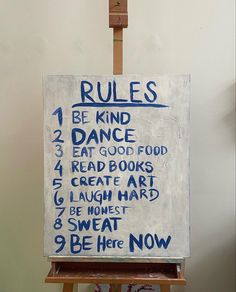 RULES
1 BE KIND
2 DANCE
3 EAT GOOD FOOD
4 READ BOOKS
5 CREATE ART
6 LAUGH HARD
7 BE HONEST
8 SWEAT
9 BE Here NOW